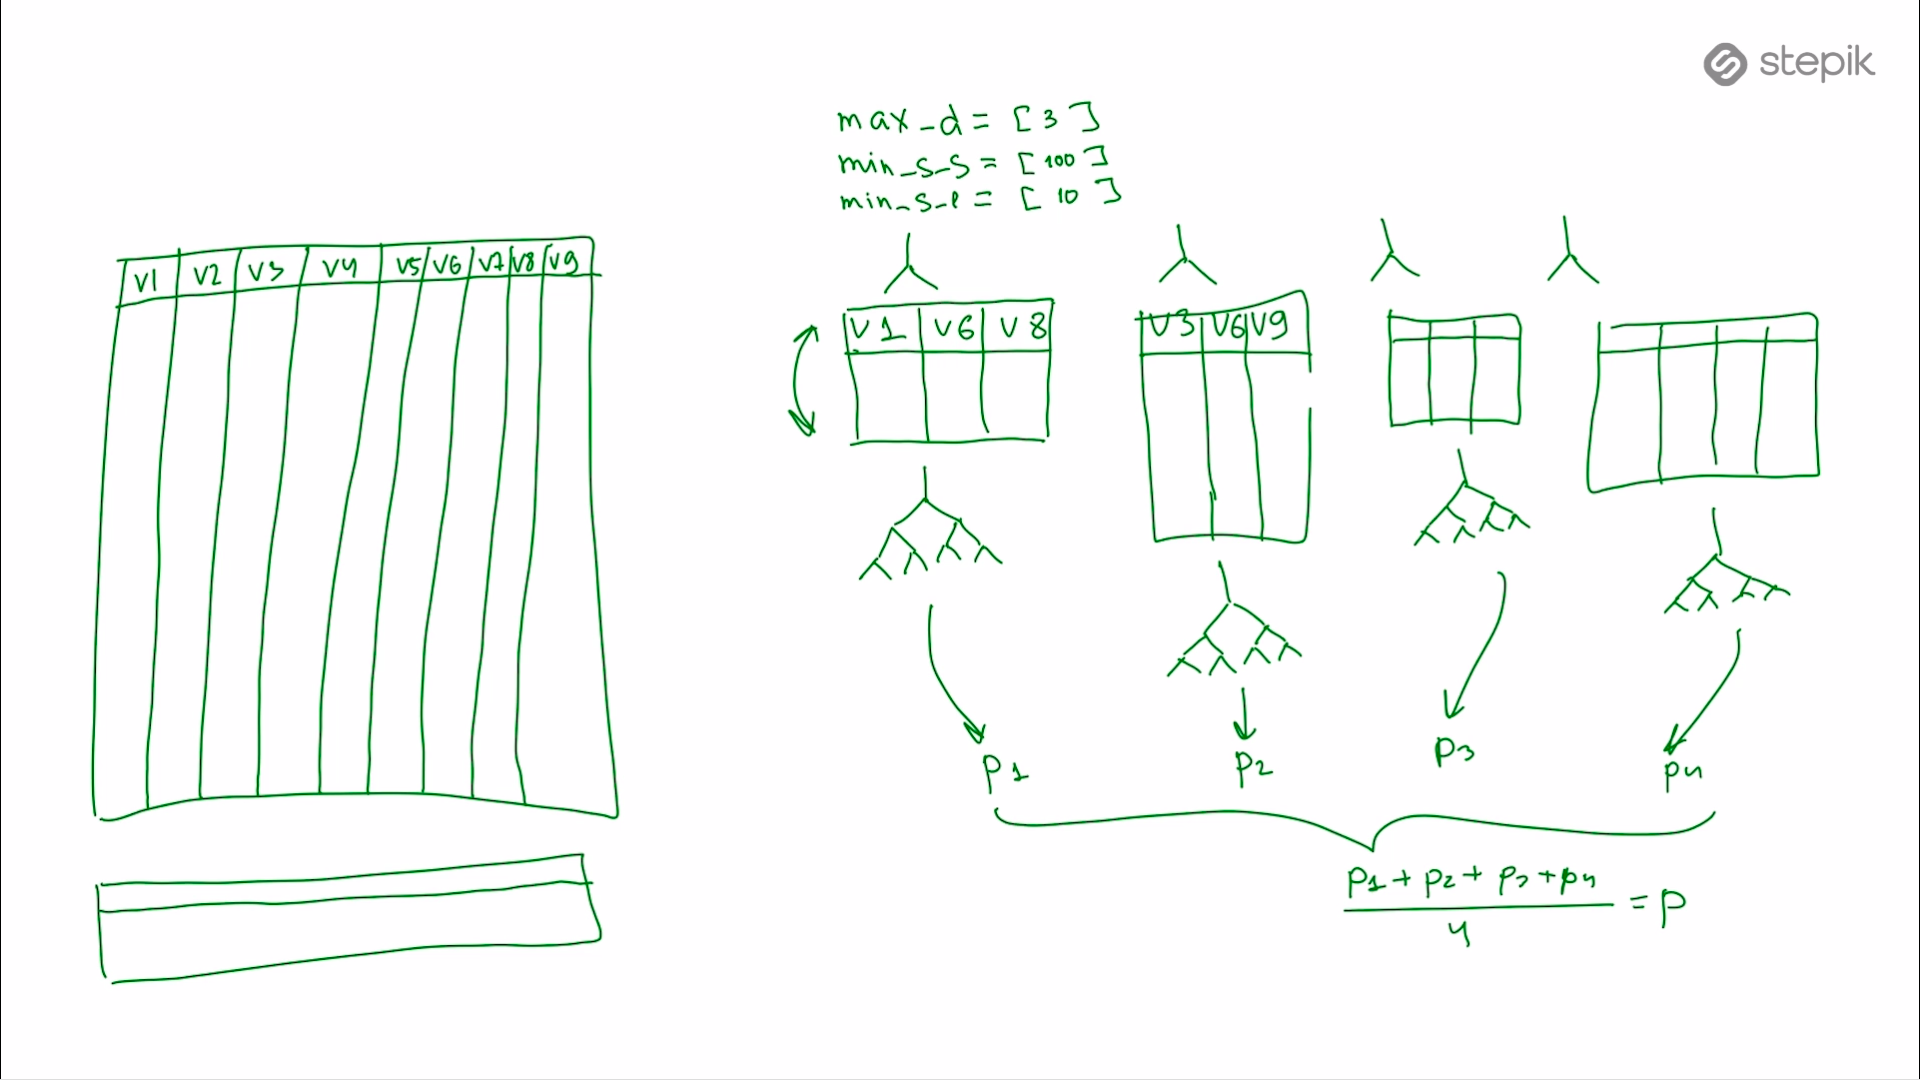 stepik
max_d = [ 3 ]
min_s_s = [ 100 ]
min_s_l = [ 10 ]
v1 v2 v3 v4 v5 v6 v7 v8 v9
v1 v6 v8
v3 v6 v9
p1 p2 p3 p4
p1 + p2 + p3 + p4
4
= p